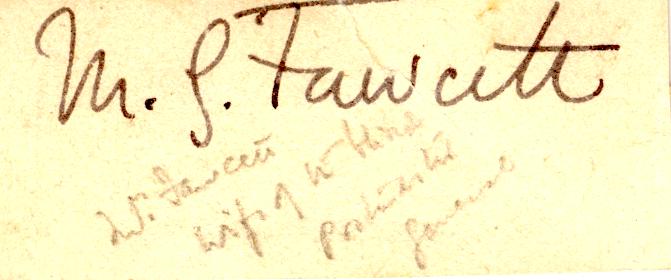 M. G. Fawcett
Fawcett
wife of
postmaster
general